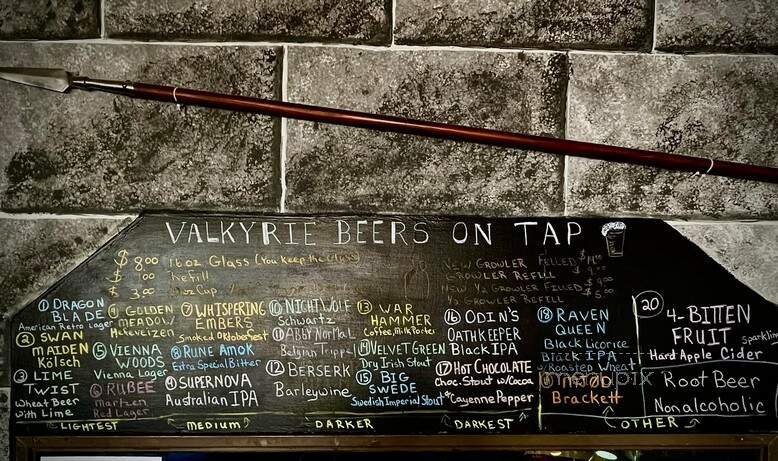 VALKYRIE BEERS ON TAP
$8.00 16 oz Glass (You keep the Glass)
Refill
$3.00 Cup
New Growler Filled
Growler Refill
New ½ Growler Filled
½ Growler Refill
① DRAGON
BLADE
American Retro Lager
② SWAN
MAIDEN
Kölsch
③ LIME
TWIST
Wheat Beer
with Lime
④ GOLDEN
MEADOW
Hefeweizen
⑤ VIENNA
WOODS
Vienna Lager
⑥ RUBEE
Martzen
Red Lager
⑦ WHISPERING
EMBERS
Smoked Oktoberfest
⑧ RUNE AMOK
Extra Special Bitter
⑨ SUPERNOVA
Australian IPA
⑩ NIGHT WOLF
Schwartz
⑪ ABBY NORMAL
Belgian Trippel
⑫ BERSERK
Barleywine
⑬ WAR
HAMMER
Coffee, Milk Porter
⑭ VELVET GREEN
Dry Irish Stout
⑮ BIG
SWEDE
Swedish Imperial Stout
⑯ ODIN'S
OATHKEEPER
Black IPA
⑰ HOT CHOCOLATE
Choc. Stout w/Cocoa
& Cayenne Pepper
⑱ RAVEN
QUEEN
Black Licorice
Black IPA
w/Roasted Wheat
Brackett
⑳ 4-BITTEN
FRUIT
Sparkling
Hard Apple Cider
Root Beer
Nonalcoholic
LIGHTEST
MEDIUM
DARKER
DARKEST
OTHER